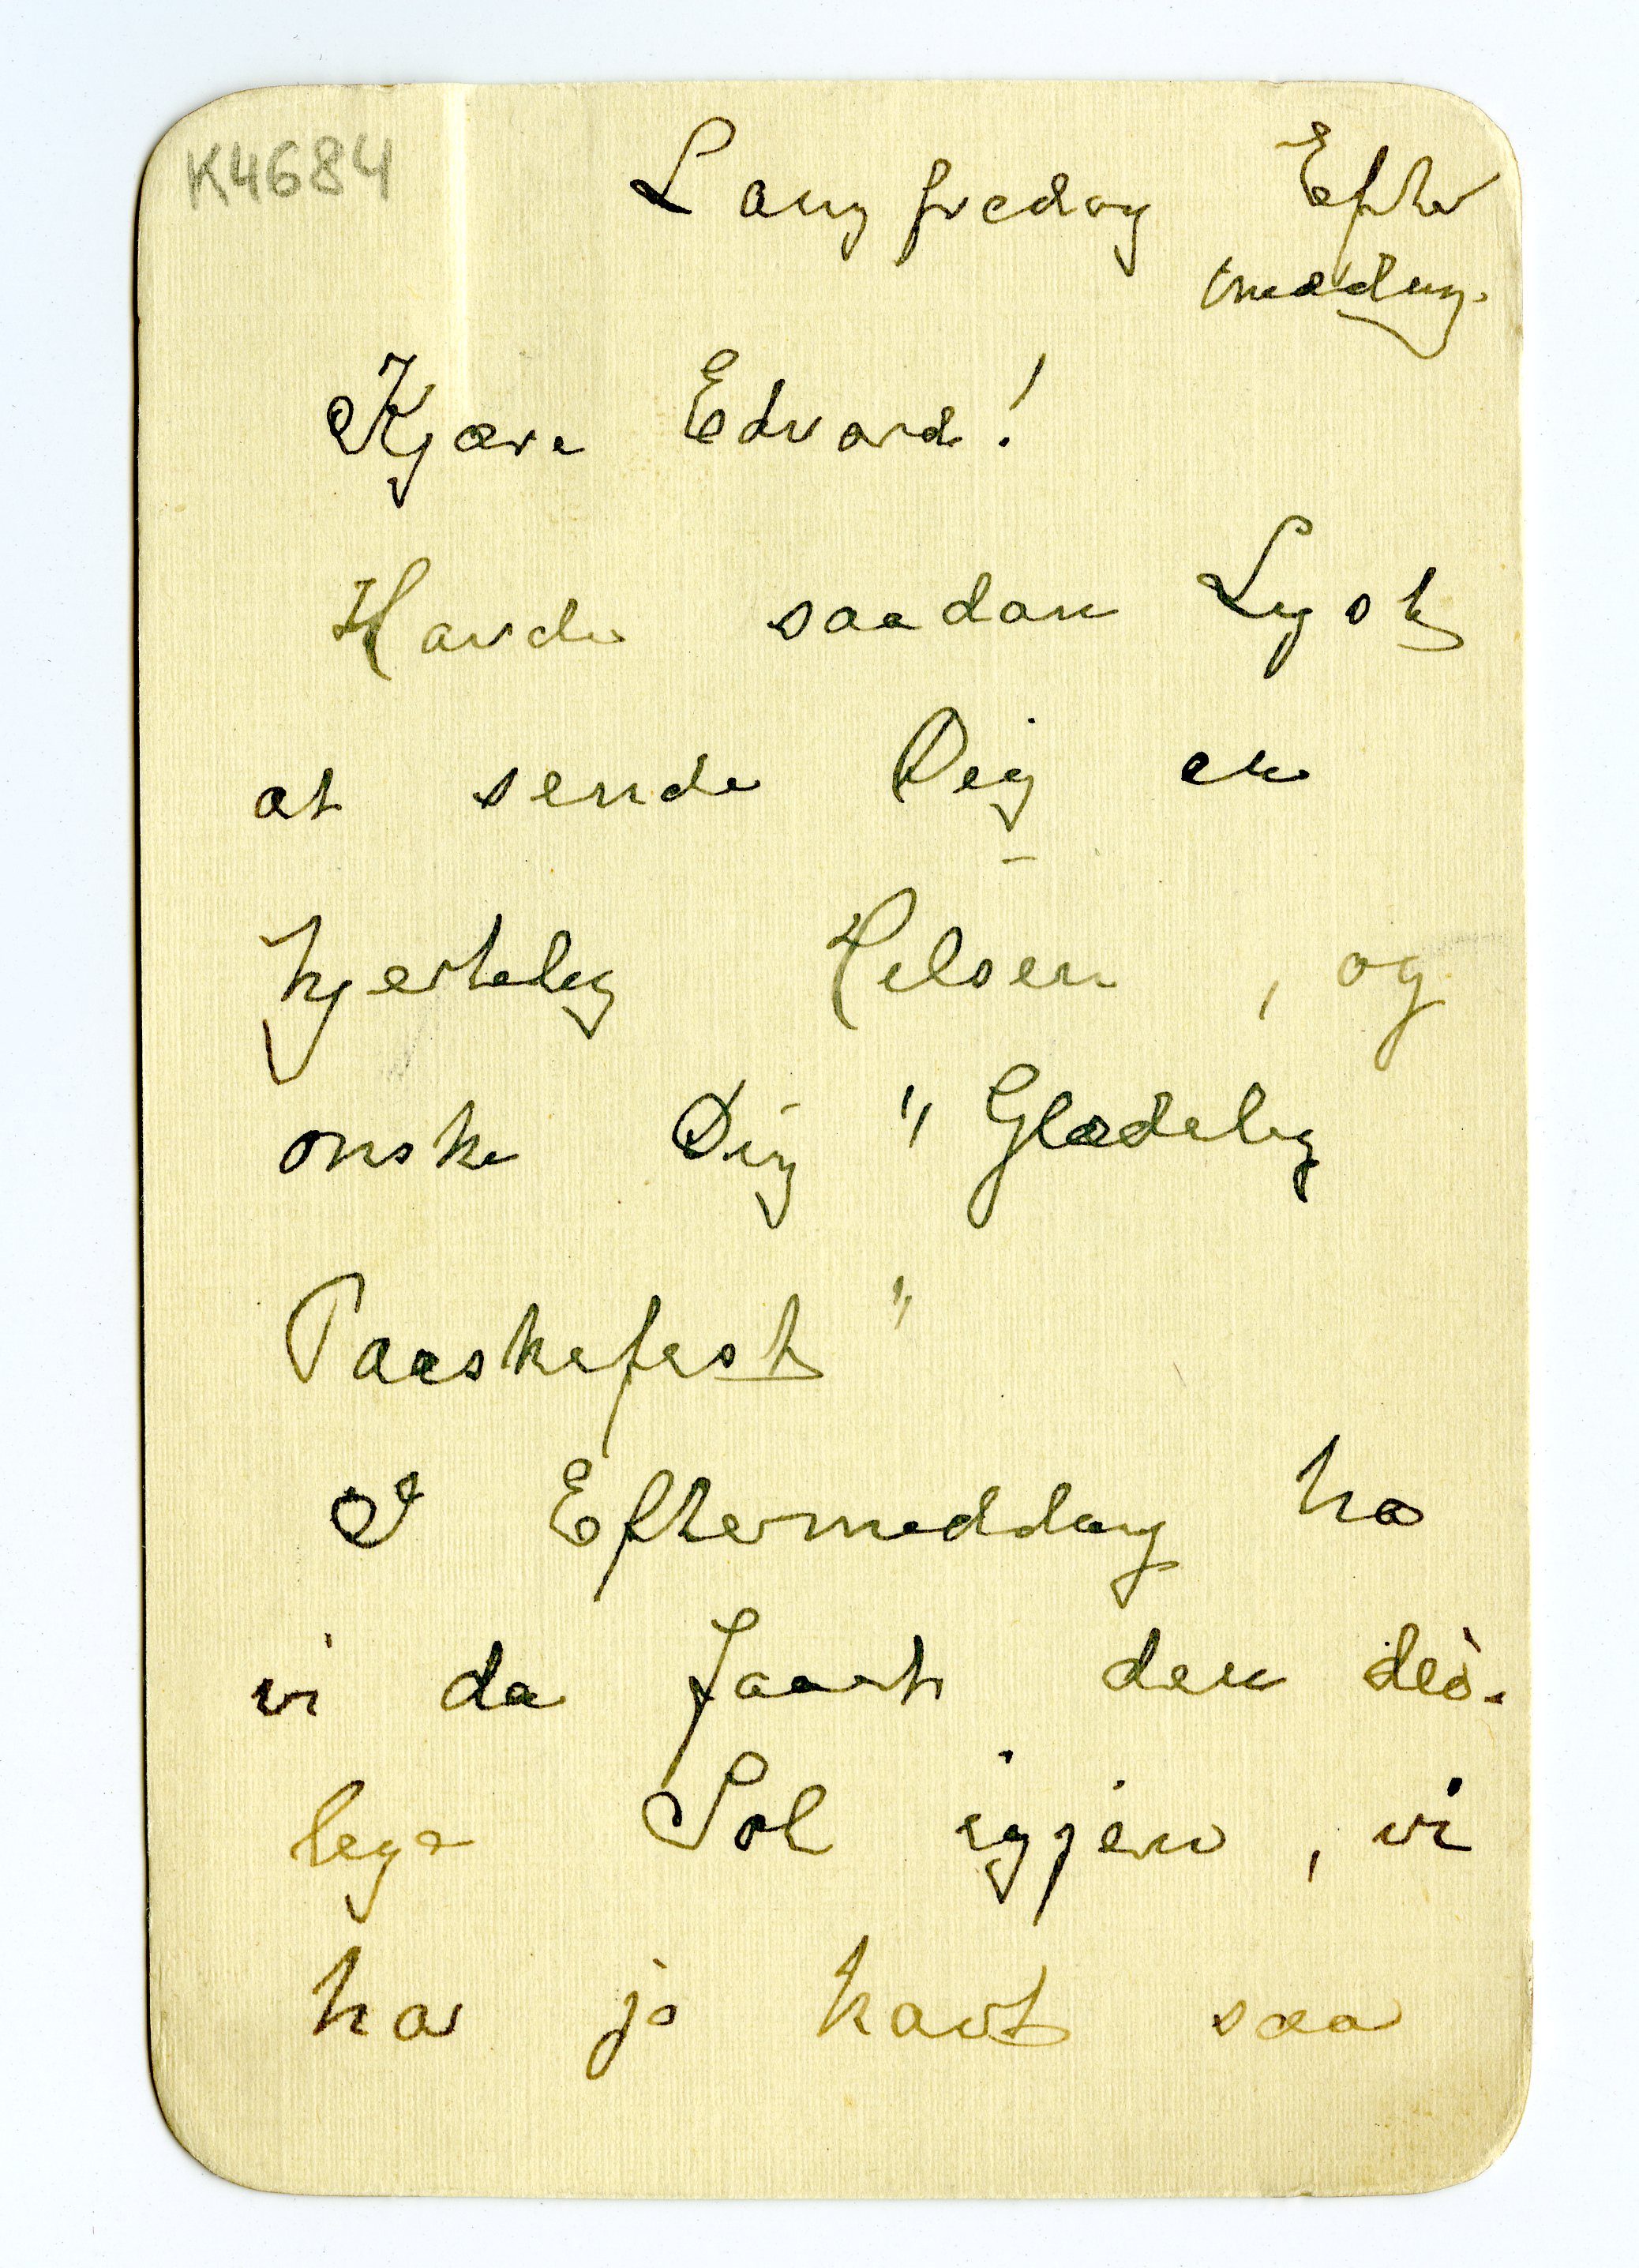 K4684
Langfredag Efter
meddag.
Kjære Edvard!
Havde saadan Lyst
at sende Deig en
hjerteleg Helsen, og
onske Dig "Glædeleg
Paaskefest"
I Eftermeddag ha
vi da faaet den dei-
lege Sol igjen, vi
har jo havt saa